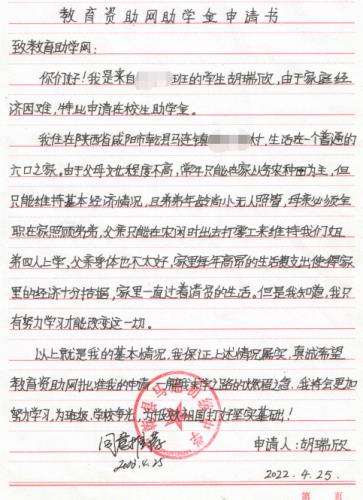 教育资助网助学金申请书
致教育助学网：
你们好！我是来自 班的学生胡瑞欣，由于家庭经
济困难，特此申请在校生助学金。
我住在陕西省咸阳市乾县马连镇 村，生活在一个普通的
六口之家。由于父母文化程度不高，常年只能在家务农种田为主，但
只能维持基本经济情况，且弟弟年龄尚小无人照管，母亲必须全
职在家照顾弟弟，父亲只能在农闲时出去打零工来维持我们姐
弟四人上学，父亲身体也不太好，家里每年高昂的生活费支出使得家
里的经济十分拮据，家里一直过着清贫的生活。但是我知道，我只
有努力学习才能改变这一切。
以上就是我的基本情况，我保证上述情况属实，真诚希望
教育资助网批准我的申请，解我求学之路的燃眉之急，我将会更加
努力学习，为班级、学校争光，为报效祖国打好坚实基础！
同意推荐 申请人：胡瑞欣
2022.4.25 2022.4.25.
第 页